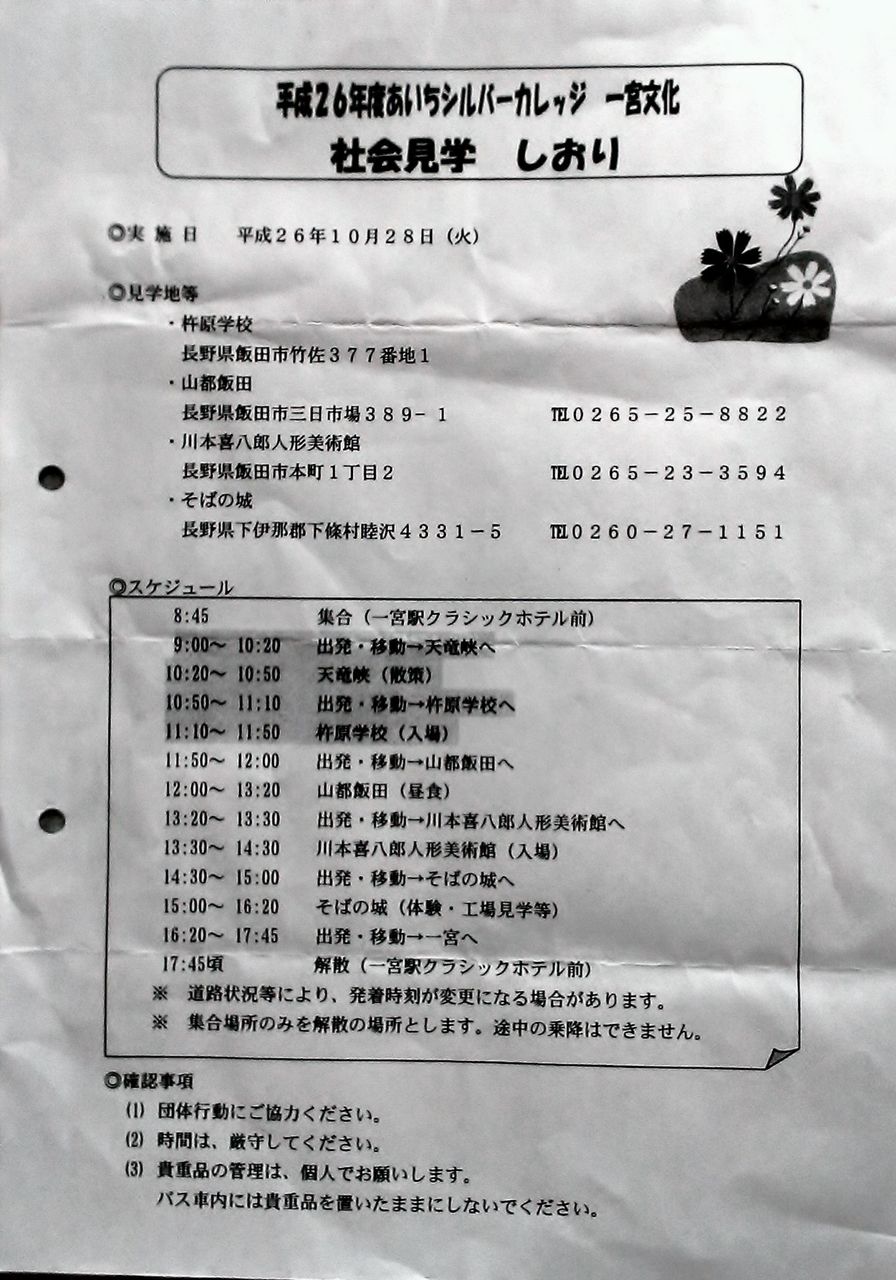 平成26年度あいちシルバーカレッジ　一宮文化
社会見学　しおり
◎実 施 日　平成２６年１０月２８日（火）
◎見学地等
・杵原学校
長野県飯田市竹佐３７７番地１
・山都飯田
長野県飯田市三日市場３８９－１　℡０２６５－２５－８８２２
・川本喜八郎人形美術館
長野県飯田市本町１丁目２　℡０２６５－２３－３５９４
・そばの城
長野県下伊那郡下條村睦沢４３３１－５　℡０２６０－２７－１１５１
◎スケジュール
8:45　集合（一宮駅クラシックホテル前）
9:00～ 10:20　出発・移動→天竜峡へ
10:20～ 10:50　天竜峡（散策）
10:50～ 11:10　出発・移動→杵原学校へ
11:10～ 11:50　杵原学校（入場）
11:50～ 12:00　出発・移動→山都飯田へ
12:00～ 13:20　山都飯田（昼食）
13:20～ 13:30　出発・移動→川本喜八郎人形美術館へ
13:30～ 14:30　川本喜八郎人形美術館（入場）
14:30～ 15:00　出発・移動→そばの城へ
15:00～ 16:20　そばの城（体験・工場見学等）
16:20～ 17:45　出発・移動→一宮へ
17:45頃　解散（一宮駅クラシックホテル前）
※　道路状況等により、発着時刻が変更になる場合があります。
※　集合場所のみを解散の場所とします。途中の乗降はできません。
◎確認事項
(1) 団体行動にご協力ください。
(2) 時間は、厳守してください。
(3) 貴重品の管理は、個人でお願いします。
バス車内には貴重品を置いたままにしないでください。